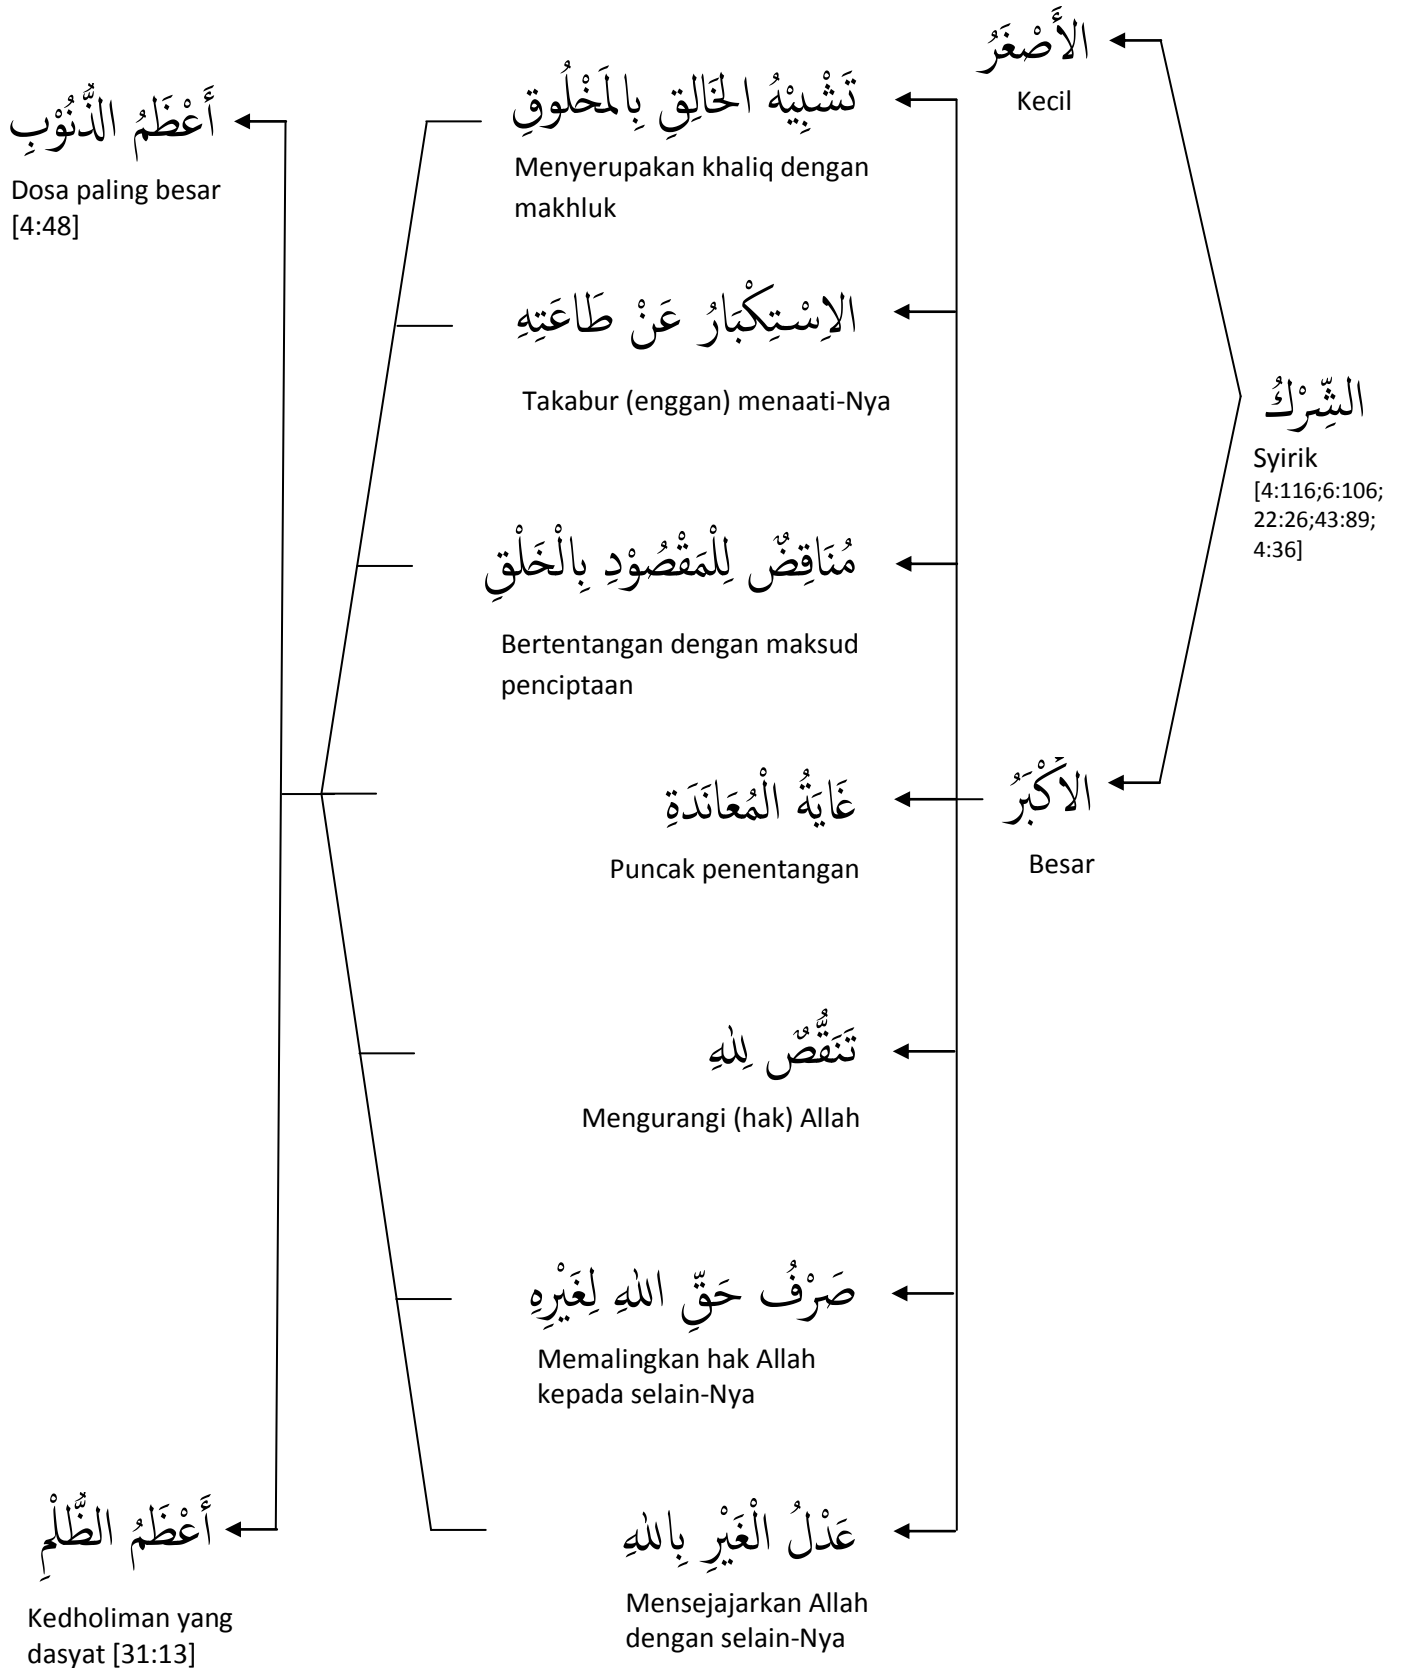 الأَصْغَرُ
Kecil
الشِّرْكُ
Syirik
[4:116;6:106;
22:26;43:89;
4:36]
الاَكْبَرُ
Besar
تَشْبِيْهُ الخَالِقِ بِالمَخْلُوقِ
Menyerupakan khaliq dengan
makhluk
الاِسْتِكْبَارُ عَنْ طَاعَتِهِ
Takabur (enggan) menaati-Nya
مُنَاقِضٌ لِلْمَقْصُوْدِ بِالْخَلْقِ
Bertentangan dengan maksud
penciptaan
غَايَةُ الْمُعَانَدَةِ
Puncak penentangan
تَنَقُّصٌ لِلهِ
Mengurangi (hak) Allah
صَرْفُ حَقِّ اللهِ لِغَيْرِهِ
Memalingkan hak Allah
kepada selain-Nya
عَدْلُ الْغَيْرِ بِاللهِ
Mensejajarkan Allah
dengan selain-Nya
أَعْظَمُ الذُّنُوْبِ
Dosa paling besar
[4:48]
أَعْظَمُ الظُّلْمِ
Kedholiman yang
dasyat [31:13]